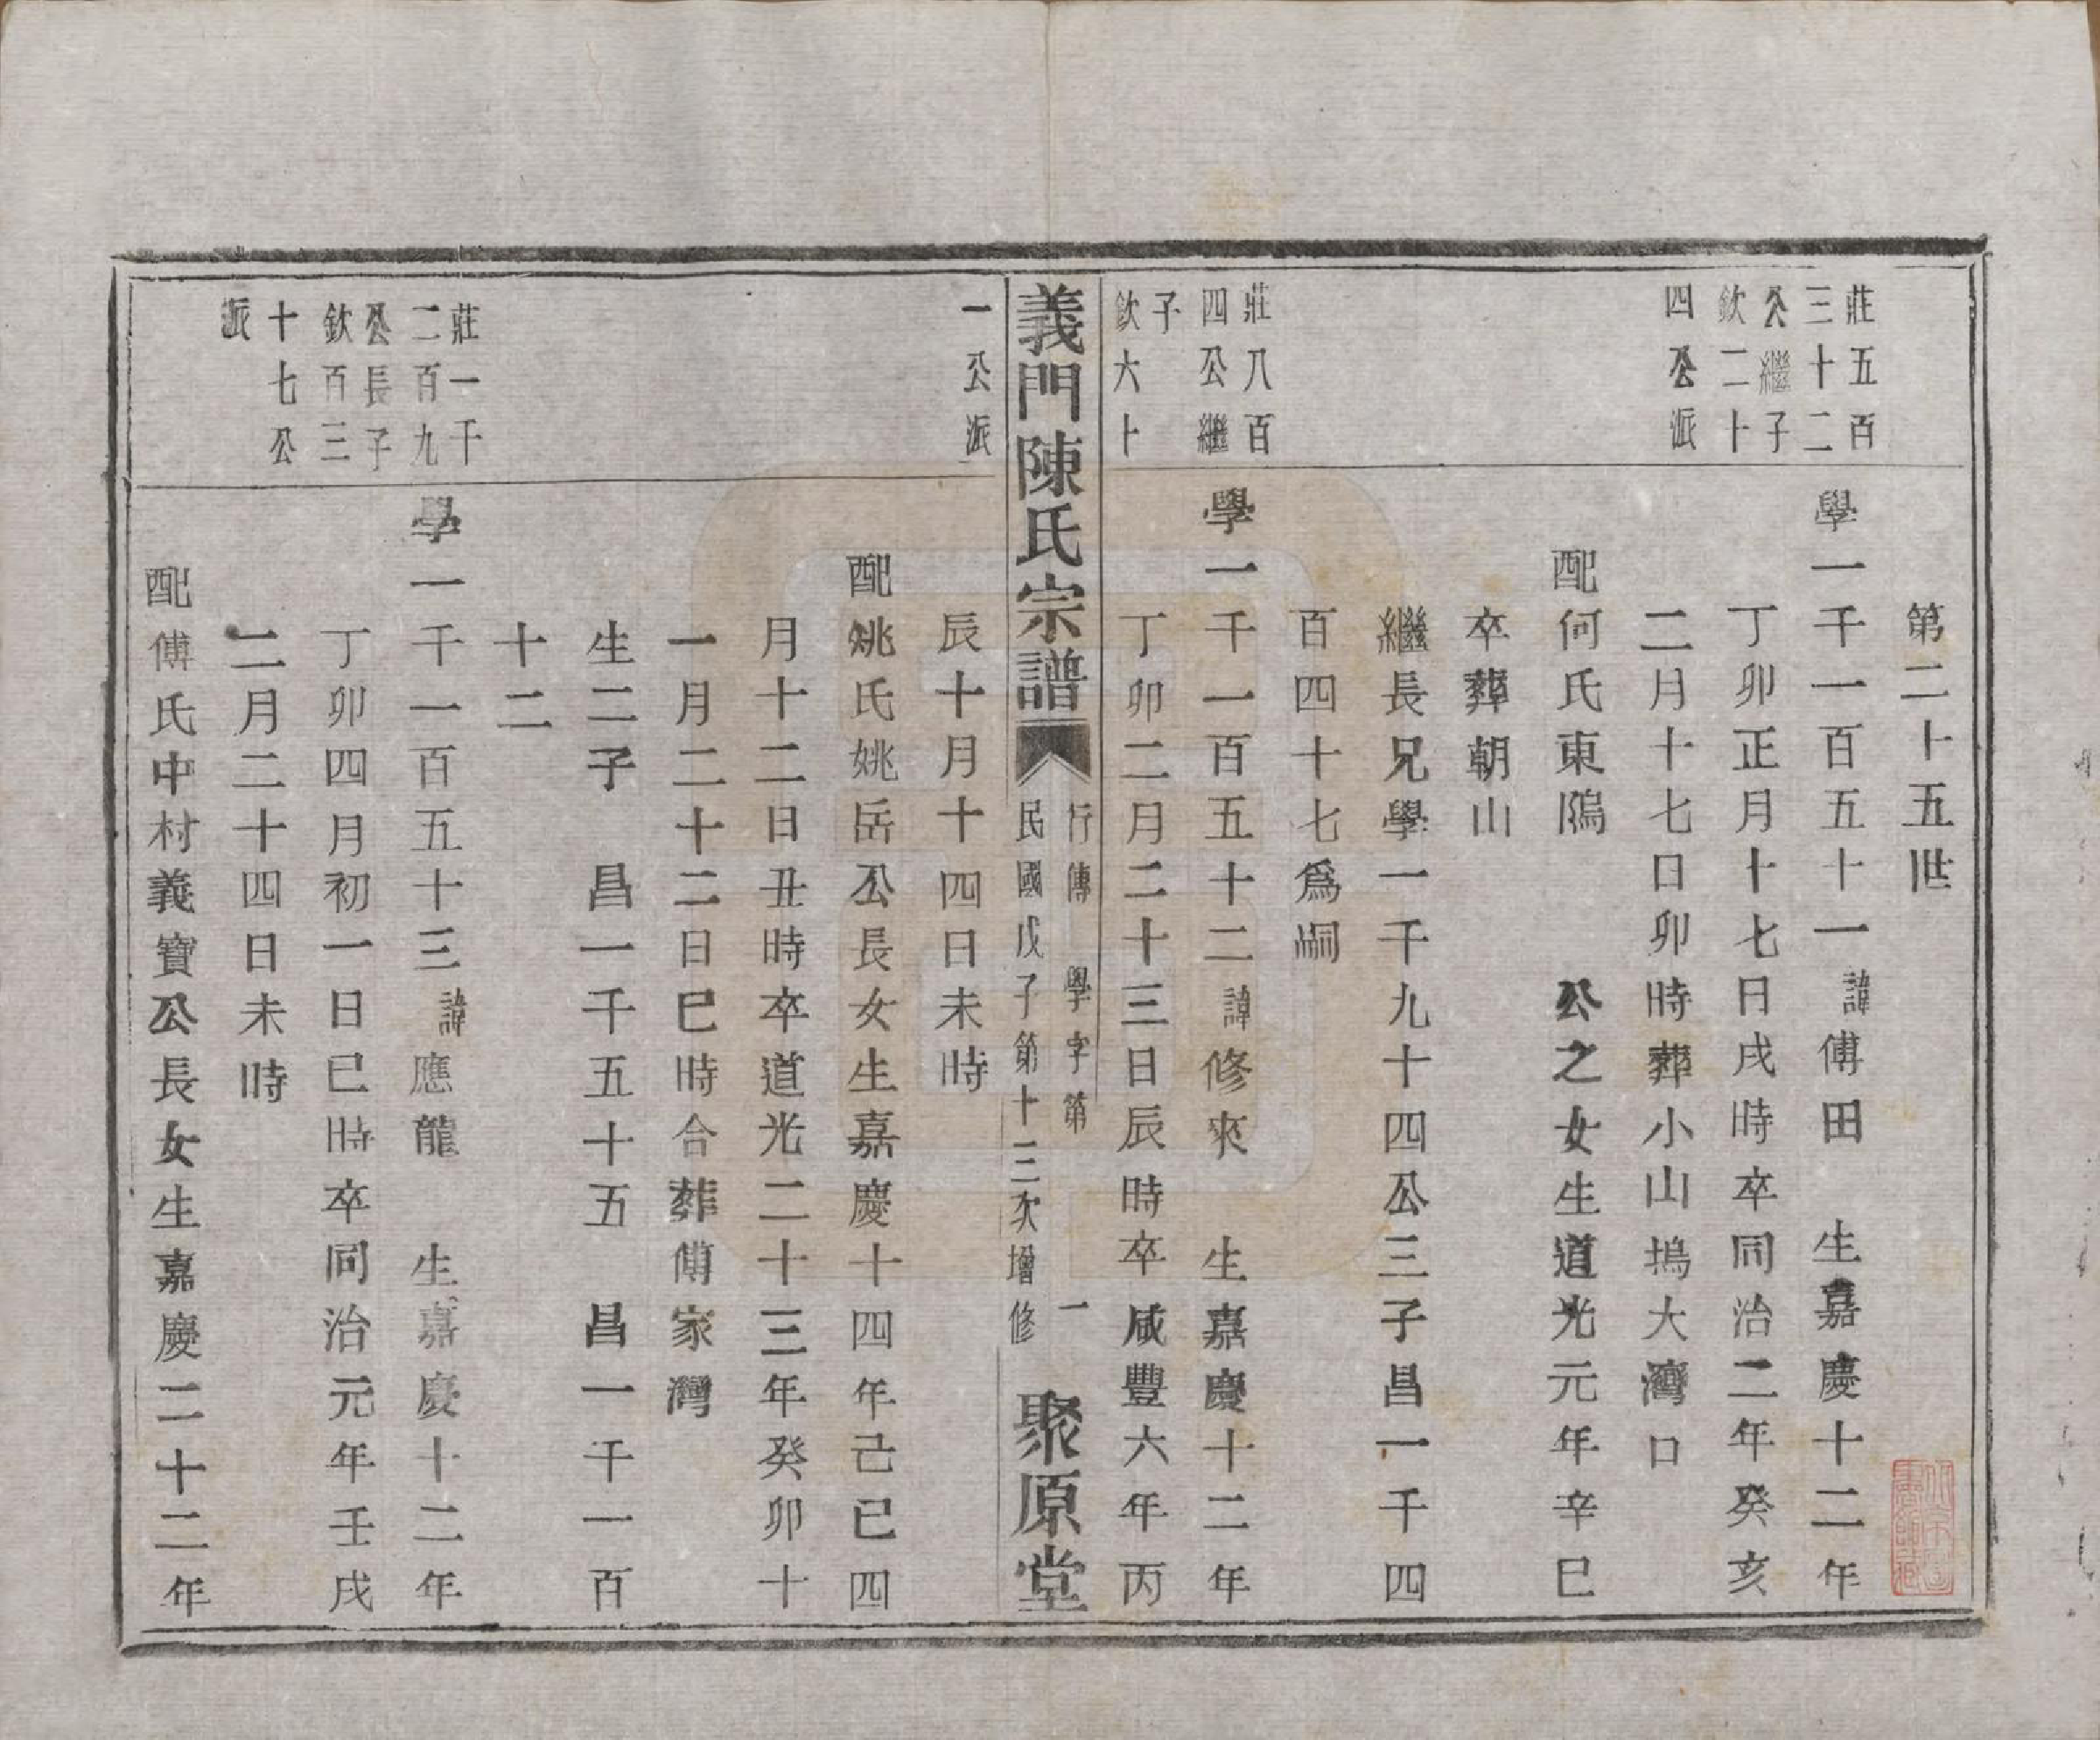 第二十五世
莊五百
三十二
公繼子
欽二十
四公派
學一千一百五十一諱傅田　生嘉慶十二年
丁卯正月十七日戌時卒同治二年癸亥
二月十七日卯時葬小山塢大灣口
配何氏東隖　公之女生道光元年辛巳
卒葬朝山
繼長兄學一千九十四公三子昌一千四
百四十七為嗣
莊八百
四公繼
子
欽六十
學一千一百五十二諱修來　生嘉慶十二年
丁卯二月二十三日辰時卒咸豐六年丙
義門陳氏宗譜
行傳　學字第　一
民國戊子第十三次增修
聚原堂
一公派
辰十月十四日未時
配姚氏姚岳公長女生嘉慶十四年己巳四
月十二日丑時卒道光二十三年癸卯十
一月二十二日巳時合葬傅家灣
生二子　昌一千五十五　昌一千一百
十二
莊一千
二百九
公長子
欽百三
十七公
派
學一千一百五十三諱應龍　生嘉慶十二年
丁卯四月初一日巳時卒同治元年壬戌
二月二十四日未時
配傅氏中村義寶公長女生嘉慶二十二年